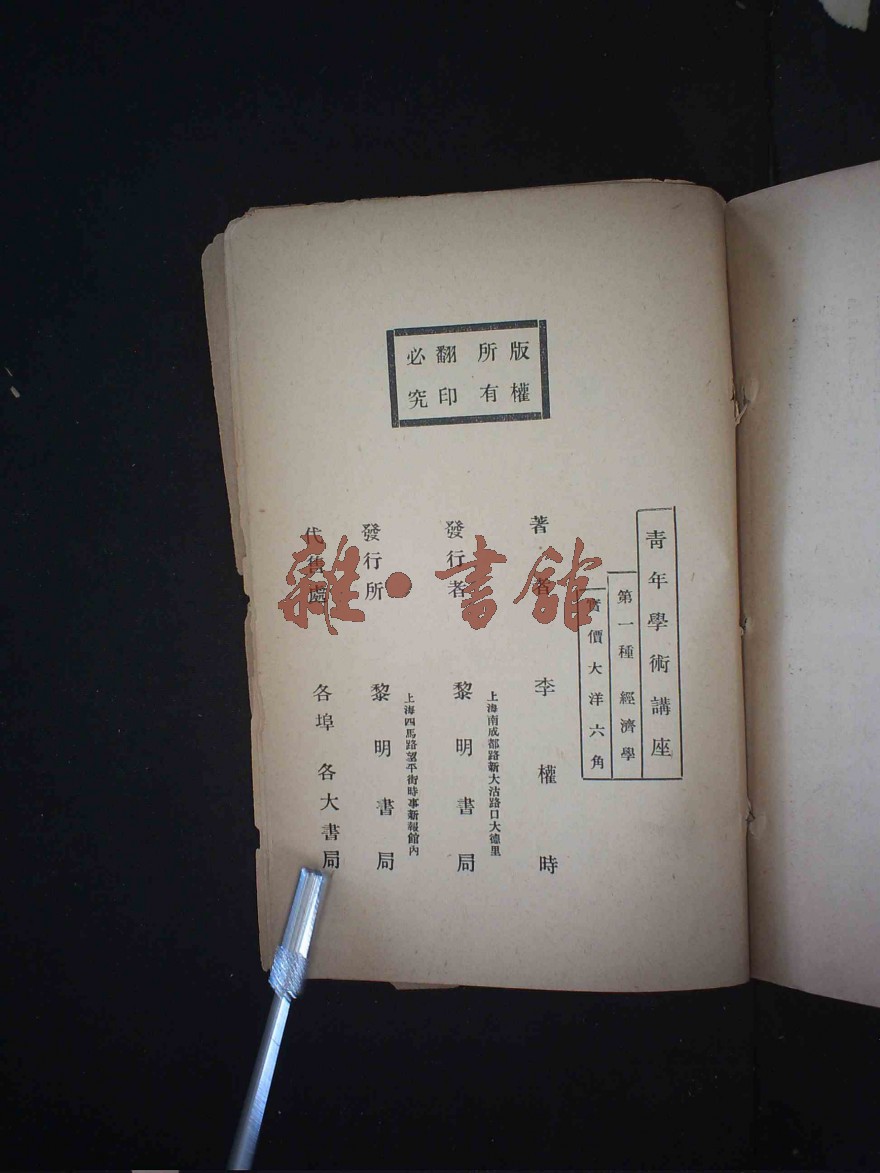 版權
所有
翻印
必究
青年學術講座
第一種 經濟學
實價大洋六角
著者 李權時
上海南成都路新大沽路口大德里
發行者 黎明書局
上海四馬路望平街時事新報館內
發行所 黎明書局
代售處 各埠各大書局
雜·書館